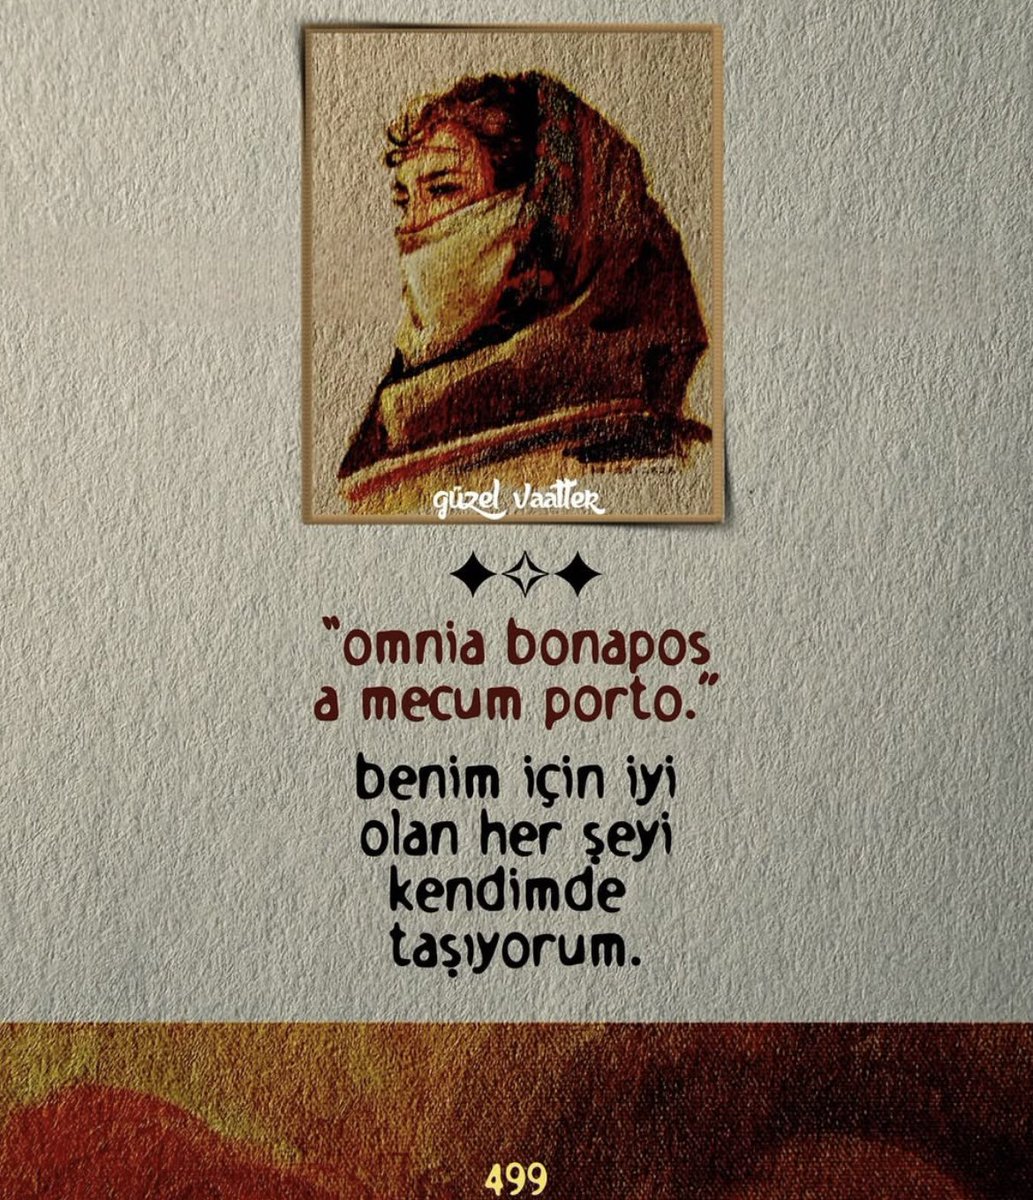 güzel vaatler
"omnia bonapos
a mecum porto."
benim için iyi
olan her şeyi
kendimde
taşıyorum.
499